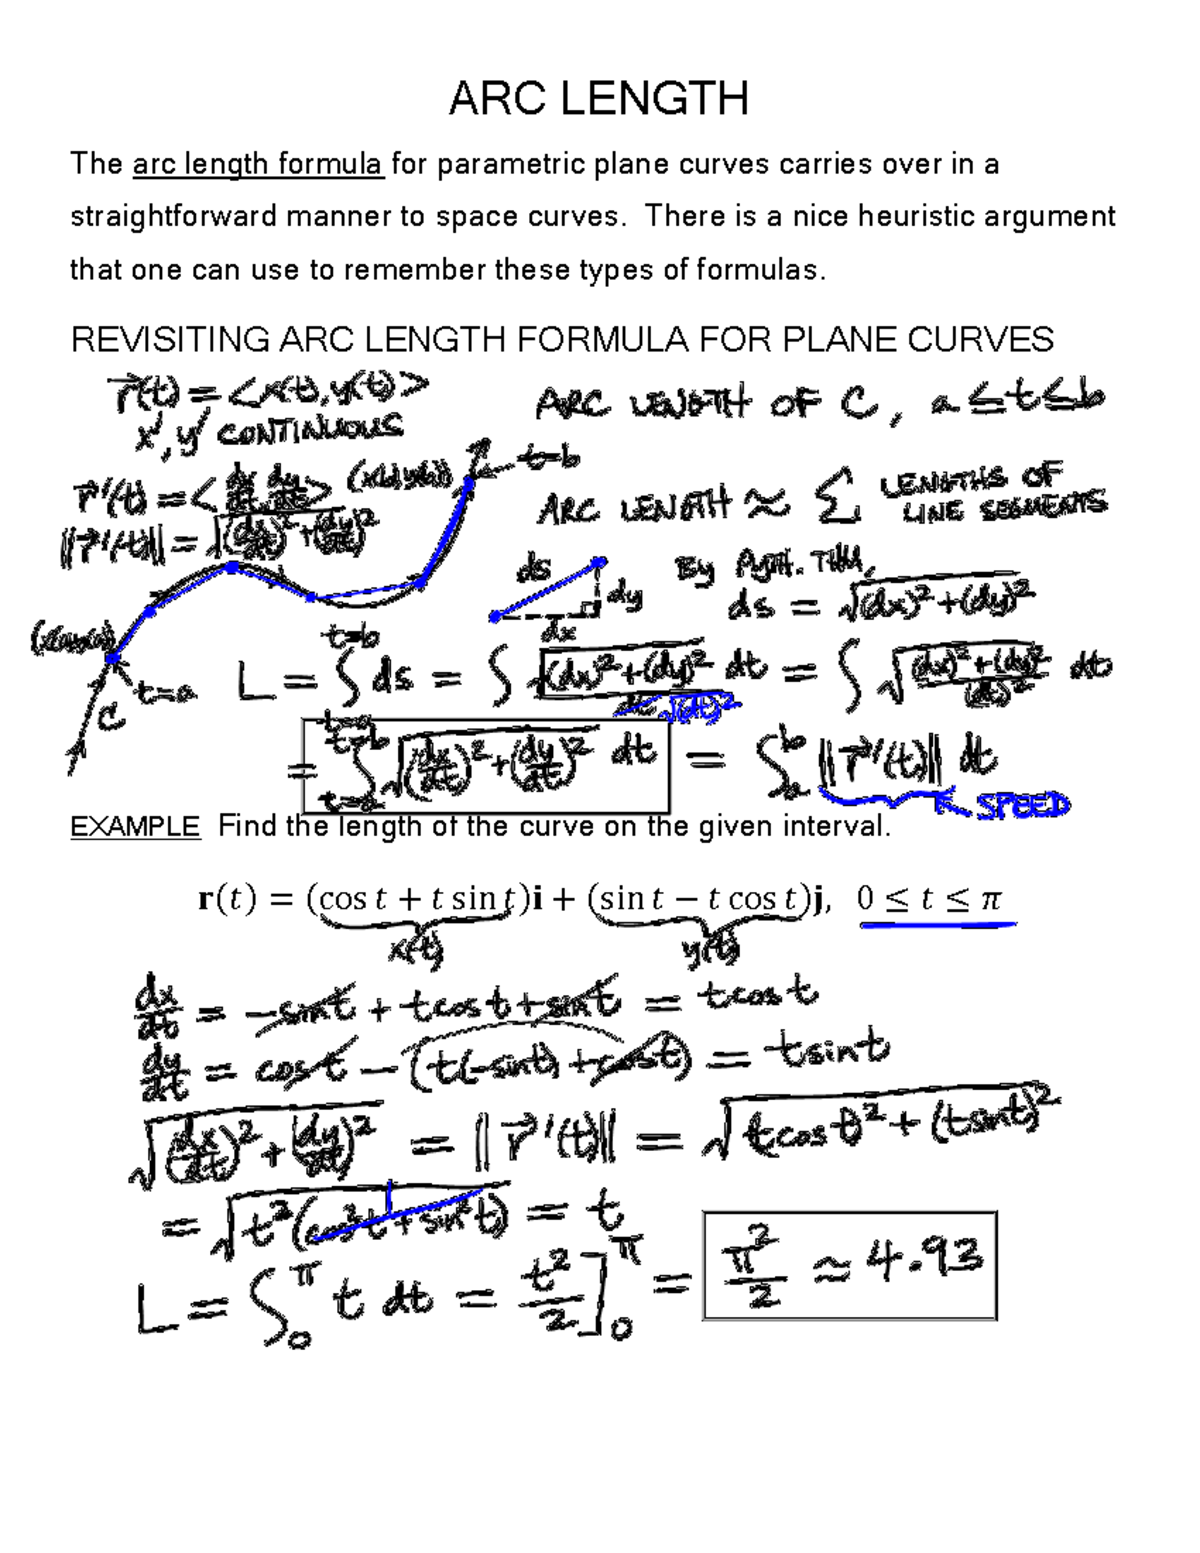 ARC LENGTH
The arc length formula for parametric plane curves carries over in a
straightforward manner to space curves.  There is a nice heuristic argument
that one can use to remember these types of formulas.
REVISITING ARC LENGTH FORMULA FOR PLANE CURVES
r⃗(t) = <x(t), y(t)>
x', y' CONTINUOUS
ARC LENGTH OF C, a ≤ t ≤ b
r⃗'(t) = <dx/dt, dy/dt>
(x(b), y(b))
t=b
ARC LENGTH ≈ Σ LENGTHS OF LINE SEGMENTS
||r⃗'(t)|| = √((dx/dt)² + (dy/dt)²)
ds
dy
dx
By PYTH. THM,
ds = √((dx)² + (dy)²)
(x(a), y(a))
t=a
C
L = ∫_{t=a}^{t=b} ds = ∫ √((dx)² + (dy)²)/dt √(dt)² dt = ∫ √(((dx)² + (dy)²)/(dt)²) dt
= ∫_{t=a}^{t=b} √((dx/dt)² + (dy/dt)²) dt = ∫_a^b ||r⃗'(t)|| dt
SPEED
EXAMPLE  Find the length of the curve on the given interval.
r(t) = (cos t + t sin t)i + (sin t − t cos t)j,  0 ≤ t ≤ π
x(t)
y(t)
dx/dt = -sint + tcost + sint = tcost
dy/dt = cost - (t(-sint) + cost) = tsint
√((dx/dt)² + (dy/dt)²) = ||r⃗'(t)|| = √(tcost)² + (tsint)²
= √(t²(cos²t + sin²t)) = t
1
L = ∫_0^π t dt = t²/2]_0^π = π²/2 ≈ 4.93